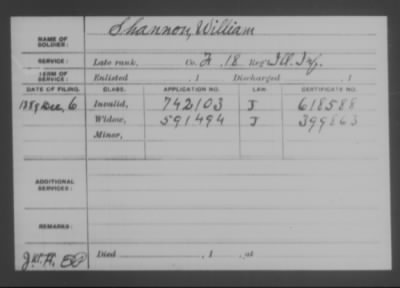 NAME OF SOLDIER: Shannon, William
SERVICE: Late rank, Co. F, 18 Reg't Ill. Inf.
TERM OF SERVICE: Enlisted , 1 Discharged , 1
DATE OF FILING. CLASS. APPLICATION NO. LAW. CERTIFICATE NO.
1889 Dec, 6 Invalid, 742103 J 618588
Widow, 591494 J 399863
Minor,
ADDITIONAL SERVICES:
REMARKS:
Died , 1 , at